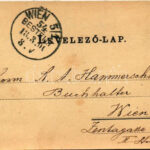 WIEN 5/1
54
BEST
LEVELEZŐ-LAP.
Herrn A. A. Hammerschl
Buchhalter
Wien
Zentagasse